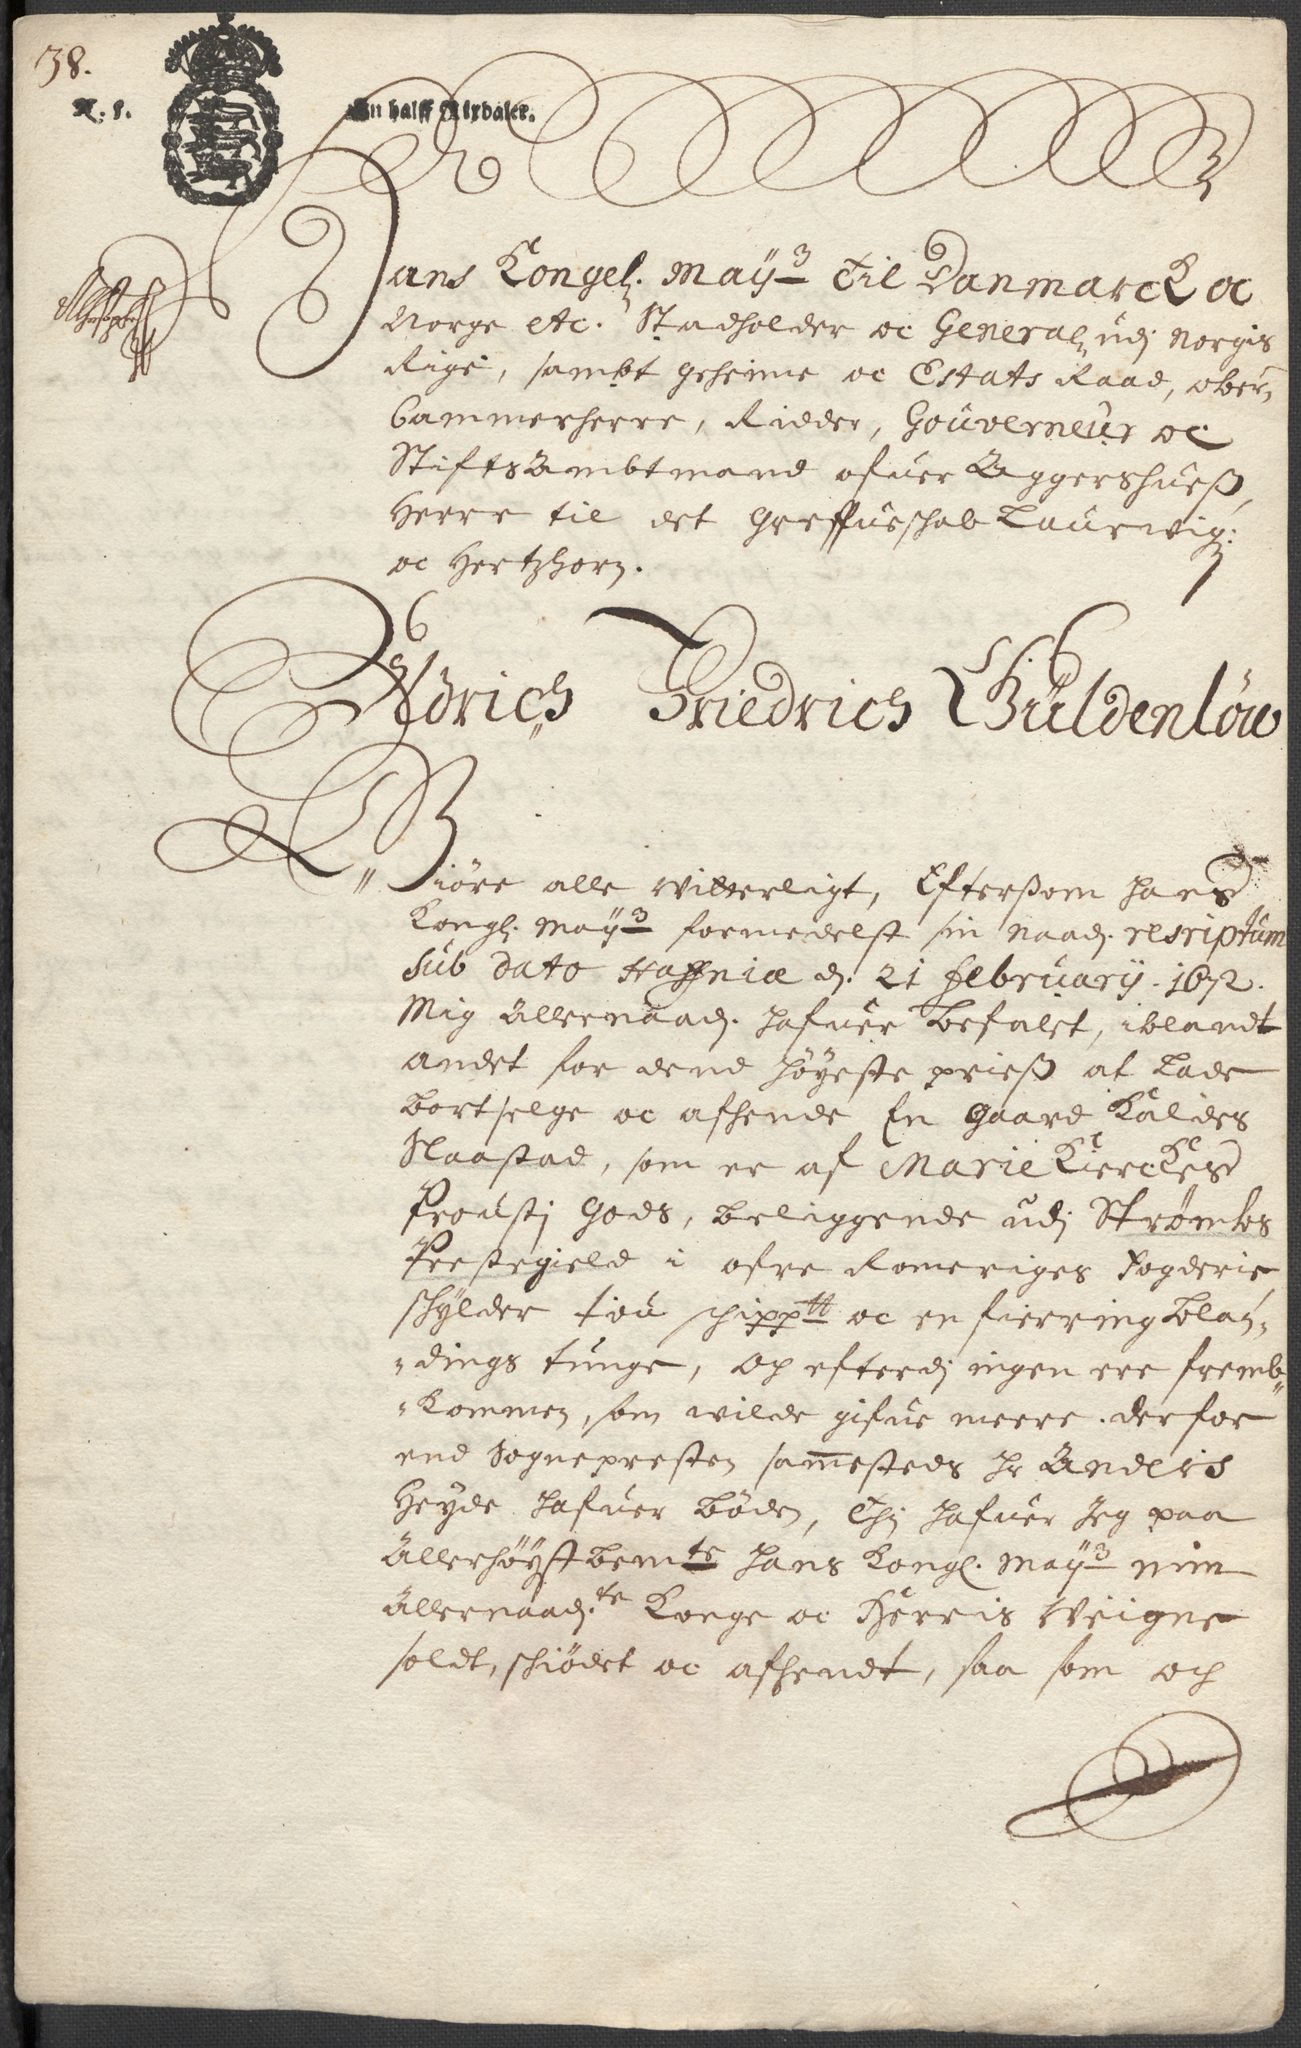 38.
N. 8.
En halff Rixdaler.
Hans Kongel. Maÿ: til Danmarck oc
Norge etc. Stadholder oc General udj Norgis
Rige, sambt geheime oc Estats Raad, ober
Cammerherre, Ridder, Gouverneur oc
Stifts Ambtmand ofuer Aggershuuß,
Herre til det Greffueschab Laurwig:
oc Hertzhorn.
Uldrich Friedrich Güldenlöw
Giöre alle witterligt, Eftersom Hans
Kongl. Maÿ: formedelst sin Naad. rescriptum
sub dato Haffniæ d. 21 februarij. 1672.
Mig Allernaad. hafuer befalet, iblandt
andet for dend höÿeste prieß at lade
bortselge oc afhende En Gaard kaldes
Naastad, som er af Marie Kierckes
Proustj Gods, beliggende udj Strømbs
Prestegield i ofre Romeriges Fogderie
schÿlder tou schippt oc en fierring blan-
dings tunge, och efterdj ingen ere fremb-
kommen, som wilde gifue meere derfor
end Sognepresten sammesteds Hr Anders
Heÿde hafuerböden, Thj hafuer Jeg paa
Allerhöÿstbemte Hans Kongl. Maÿ: min
Allernaad.te Konge oc Herris Weigne
soldt, schiödet oc afhendt, saa som och